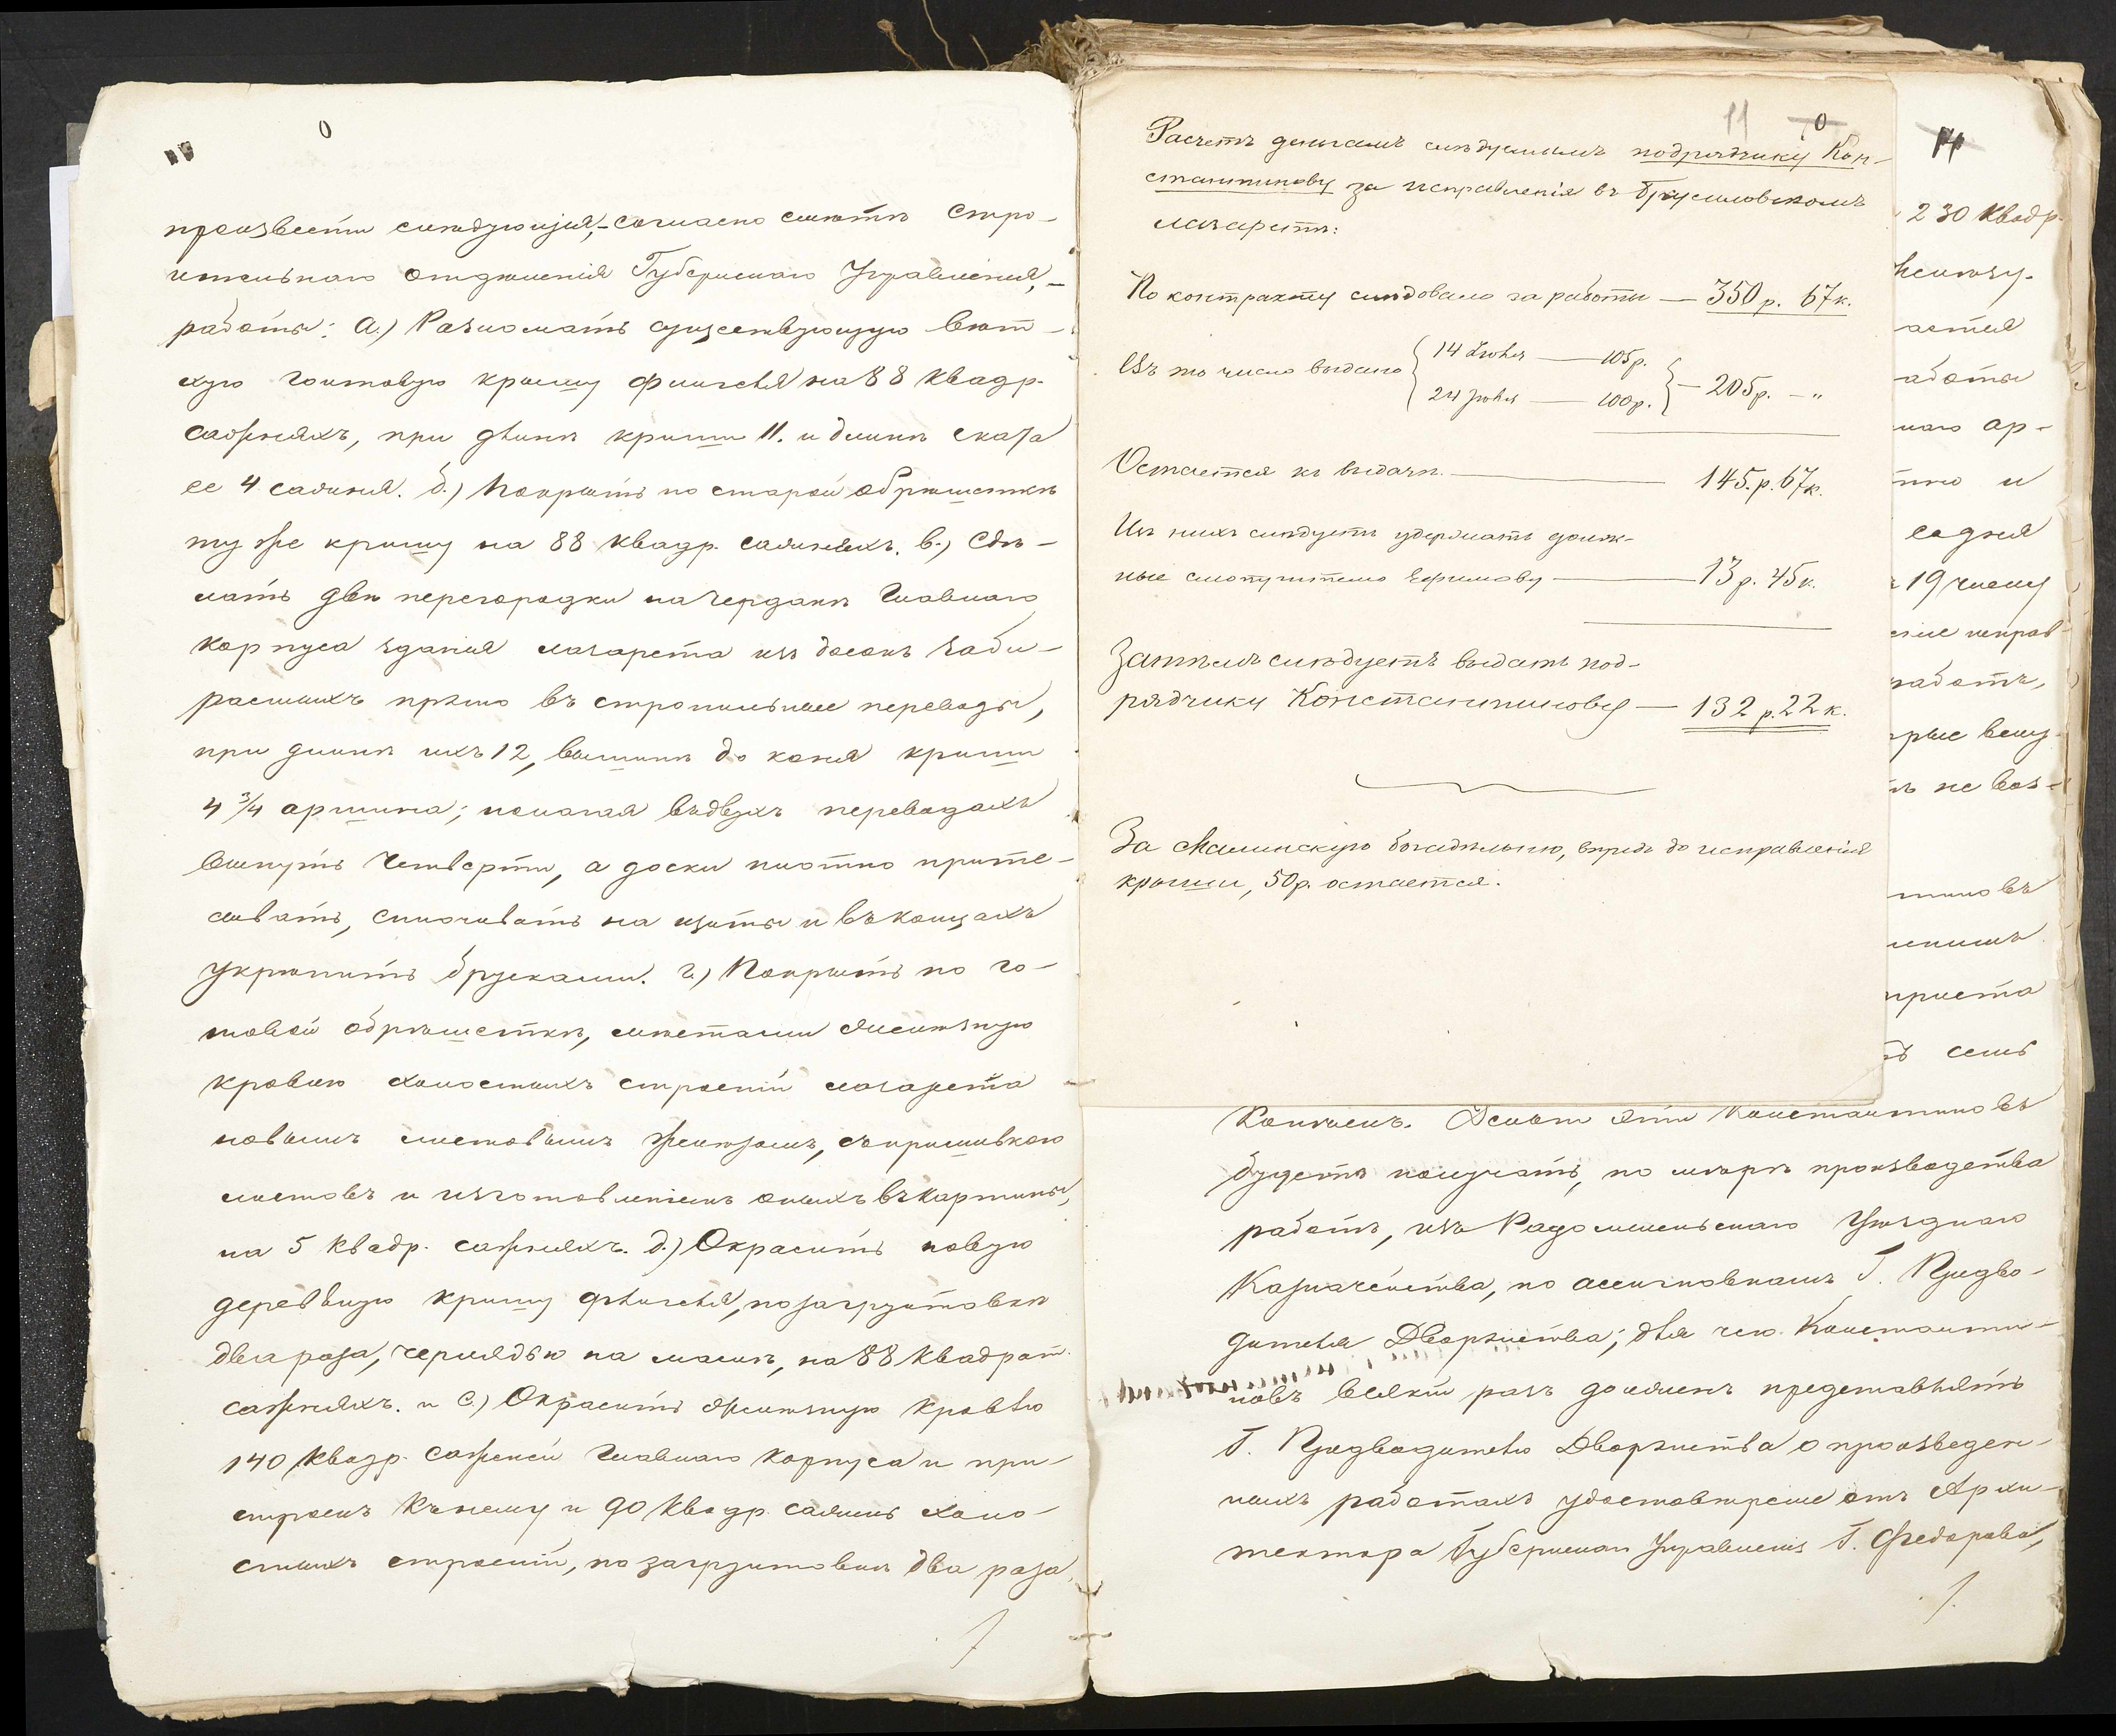 произвести слѣдующія,-согласно смѣтѣ Стро-
ительнаго отдѣленія Губернскаго Управленія,-
работы: а.) Разломать существующую вет-
хую гонтовую крышу флигеля на 88 квадр.
саженяхъ, при длинѣ крыши 11. и длинѣ ската
ее 4 сажня. б.) Покрыть по старой обрѣшеткѣ
ту же крышу на 88 квадр. саженяхъ. в.) Сдѣ-
лать двѣ перегородки на чердакѣ Главнаго
корпуса зданія лазарета изъ досокъ заби-
раемыхъ прямо въ стропильные переводы,
при длинѣ ихъ 12, вышинѣ до коня крыши
4 3/4 аршина; полагая въ двухъ переводахъ
вынуть четверти, а доски плотно прите-
сывать, сплочивать на щиты и въ концахъ
укрѣпить брусками. г.) Покрыть по го-
товой обрѣшеткѣ, мѣстами желѣзную
кровлю холостыхъ строеній лазарета
новымъ листовымъ желѣзомъ, съ пришивкою
листовъ и изготовленіемъ оныхъ въ картины,
на 5 квадр. саженяхъ. д.) Окрасить новую
деревяную крышу флигеля, по загрунтовкѣ
два раза, чернядью на маслѣ, на 88 квадрат.
саженяхъ. и е.) Окрасить желѣзную кровлю
140 квадр. саженей Главнаго корпуса и при-
строекъ къ нему и 90 квадр. сажень холо-
стыхъ строеній, по загрунтовкѣ два раза
11
Расчетъ деньгамъ слѣдуемымъ подрядчику Кон-
стантинову за исправленія въ Брусиловскомъ
лазаретѣ:
По контракту слѣдовало за работы — 350 р. 67 к.
Въ то число выдано { 14 Іюля — 105 р.
24 Іюля — 100 р. } — 205 р. — „
Остается къ выдачѣ — 145. р. 67 к.
Изъ нихъ слѣдуетъ удержать долж-
ные смотрителю Ефимову — 13 р. 45 к.
Затѣмъ слѣдуетъ выдать под-
рядчику Константинову — 132 р. 22 к.
За Малинскую богадѣльню, впредь до исправленія
крыши, 50 р. остается.
230 квадр.
астся
аботы
наго ар-
и
19 числу
работъ,
не воз-
семь
копѣекъ. Деньги эти Константиновъ
будетъ получать, по мѣрѣ производства
работъ, изъ Радомысльскаго Уѣзднаго
Казначейства, по ассигновкамъ Г. Предво-
дителя Дворянства; для чего Константи-
новъ всякій разъ долженъ представлять
Г. Предводителю Дворянства о произведен-
ныхъ работахъ удостовѣреніе отъ Архи-
тектора Губернскаго Управленія Г. Федорова,